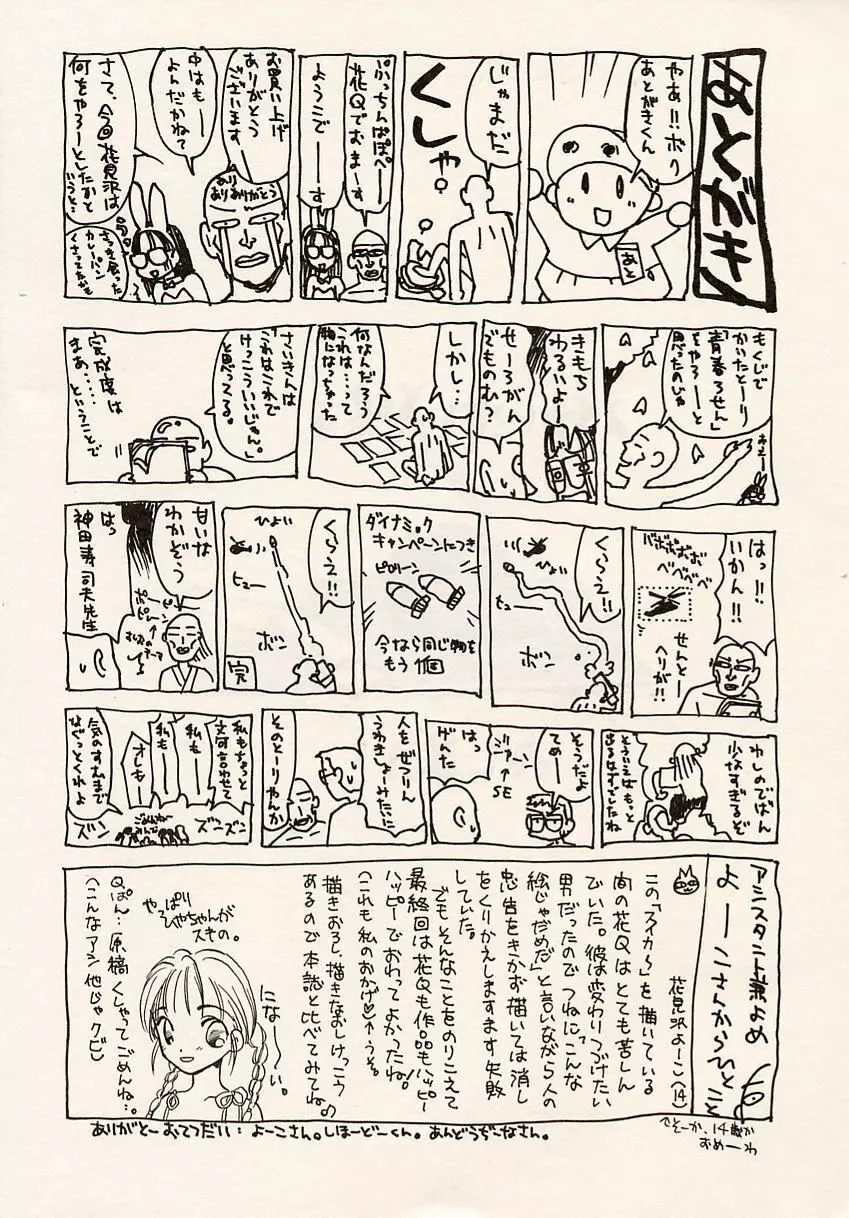 あとがき
やあ!!ボク
あとがきくん
あと
じゃまだ
くしゃ
ぷっちんぱぽぺー
花Qでおまーす
ようこでーーす
お買い上げ
ありがとう
ございます
ありありありがとう
中はもー
よんだかねて
さて、今回花見沢は
何をやろーとしたかと
いうと…
さっき食った
カレーパン
くさってたかも
もくじで
かいたとーり
「青春ろせん」
をやろーと
思ったのじゃ
ねえー
きもち
わるいよー
せーろがん
でものむ?
しかし…
何なんだろう
これは…って
物になっちゃった
さいきんは
「これはこれで
けっこういいじゃん。」
と思ってくる。
完成度は
まあ‥‥
ということで
はっ!!
いかん!!
バボボボボボ
ベベベベベ
せんとー
ヘリが!!
くらえ!!
ひょい
ヒュー
ボン
ダイナミック
キャンペーンにつき
ピローン
今なら同じ物を
もう1個
くらえ!!
ひょい
ヒュー
ボン
完
甘いな
わかぞう
はっ
神田寿司夫先生
わしのでばん
少なすぎるぞ
そういえばもっと
出るはずでしたね
そうだよ
てめー
ジャーン
↑
SE
はっ
げんた
人をぜつりん
うわきしょーみたいに
そのとーりやんか
私もちょっと
文句言わせて
私も
私も
オレもー
ごめんねー
みんな
気のすむまで
なぐっとくれよ
ズンズンズン
アシスタント兼よめ
よーこさんからひとこと
花見沢よーこ(14)
この「スイカ〜」を描いている
間の花Qはとても苦しん
でいた。彼は変わりつづけたい
男だったのでつねに「こんな
絵じゃだめだ」と言いながら人の
忠告をきかず描いては消し
をくりかえしますます失敗
していた。
でもそんなことをのりこえて
最終回は花Qも作品もハッピー
ハッピーでおわってよかったね!
(これも私のおかげ♡)↑うそ。
描きおろし、描きなおしけっこう
あるので本誌と比べてみてね。
になーーい。
やっぱり
ひやちゃんが
スキの。
Qぱん…原稿くしゃってごめんね…。
(こんなアシ他じゃクビ)
そーか、14歳か
おめーわ
ありがとーおてつだい:よーこさん。しほーどーくん。あんどうぢーなさん。